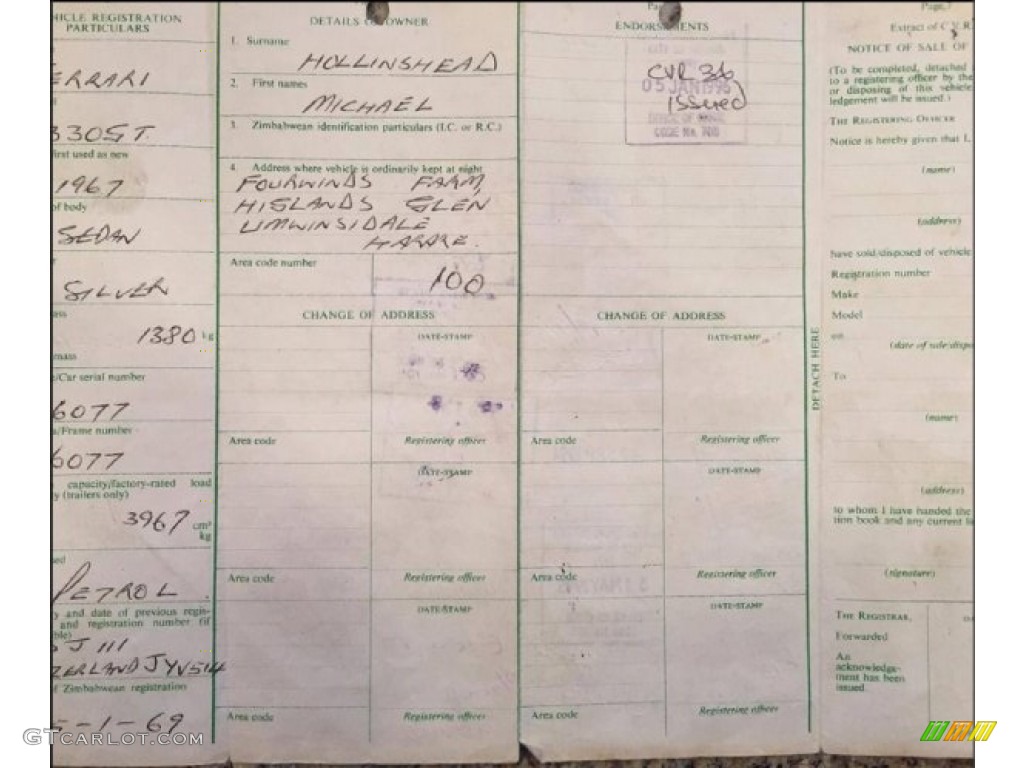 HICLE REGISTRATION
PARTICULARS
ERRARI
330ST.
irst used as new
1967
of body
SEDAN
SILVER
ass
1380 kg
mass
/Car serial number
6077
/Frame number
6077
capacity/factory-rated load
y (trailers only)
3967 cm³
kg
ed
PETROL.
y and date of previous regis-
and registration number (if
ble)
J 111
ZERLAND JYV514
f Zimbabwean registration
5-1-69
DETAILS OF OWNER
1. Surname
HOLLINSHEAD
2. First names
MICHAEL
3. Zimbabwean identification particulars (I.C. or R.C.)
4. Address where vehicle is ordinarily kept at night
FOURWINDS FARM,
HISLANDS GLEN
UMWINSIDALE
HARARE.
Area code number
100
CHANGE OF ADDRESS
DATE-STAMP
Area code Registering officer
DATE-STAMP
Area code Registering officer
DATE-STAMP
Area code Registering officer
ENDORSEMENTS
CVR 3b
05 JAN 1996
issered
CODE No. 100
CHANGE OF ADDRESS
DATE-STAMP
Area code Registering officer
DATE-STAMP
Area code Registering officer
DATE-STAMP
Area code Registering officer
DETACH HERE
Extract of C.V.R
NOTICE OF SALE OF
(To be completed, detached
to a registering officer by the
or disposing of this vehicle
ledgement will be issued.)
THE REGISTERING OFFICER
Notice is hereby given that I,
(name)
(address)
have sold/disposed of vehicle
Registration number
Make
Model
on
(date of sale/dispo
To
(name)
(address)
to whom I have handed the
tion book and any current li
(signature)
THE REGISTRAR,
Forwarded
An
acknowledge-
ment has been
issued.
GTCARLOT.COM